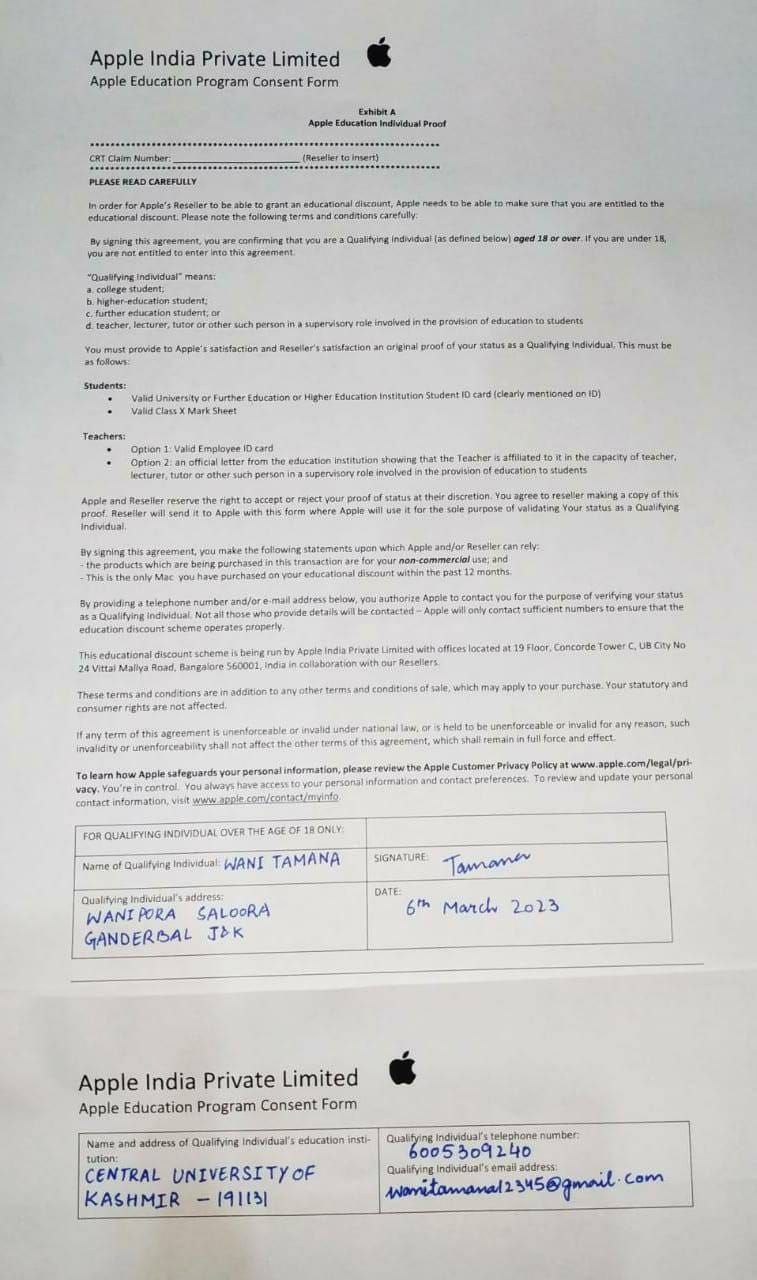 Apple India Private Limited
Apple Education Program Consent Form
Exhibit A
Apple Education Individual Proof
CRT Claim Number: ____________________ (Reseller to insert)
PLEASE READ CAREFULLY
In order for Apple's Reseller to be able to grant an educational discount, Apple needs to be able to make sure that you are entitled to the
educational discount. Please note the following terms and conditions carefully:
By signing this agreement, you are confirming that you are a Qualifying Individual (as defined below) aged 18 or over. If you are under 18,
you are not entitled to enter into this agreement.
"Qualifying Individual" means:
a. college student;
b. higher-education student;
c. further education student; or
d. teacher, lecturer, tutor or other such person in a supervisory role involved in the provision of education to students
You must provide to Apple's satisfaction and Reseller's satisfaction an original proof of your status as a Qualifying Individual. This must be
as follows:
Students:
• Valid University or Further Education or Higher Education Institution Student ID card (clearly mentioned on ID)
• Valid Class X Mark Sheet
Teachers:
• Option 1: Valid Employee ID card
• Option 2: an official letter from the education institution showing that the Teacher is affiliated to it in the capacity of teacher,
lecturer, tutor or other such person in a supervisory role involved in the provision of education to students
Apple and Reseller reserve the right to accept or reject your proof of status at their discretion. You agree to reseller making a copy of this
proof. Reseller will send it to Apple with this form where Apple will use it for the sole purpose of validating Your status as a Qualifying
Individual.
By signing this agreement, you make the following statements upon which Apple and/or Reseller can rely:
- the products which are being purchased in this transaction are for your non-commercial use; and
- This is the only Mac you have purchased on your educational discount within the past 12 months.
By providing a telephone number and/or e-mail address below, you authorize Apple to contact you for the purpose of verifying your status
as a Qualifying Individual. Not all those who provide details will be contacted – Apple will only contact sufficient numbers to ensure that the
education discount scheme operates properly.
This educational discount scheme is being run by Apple India Private Limited with offices located at 19 Floor, Concorde Tower C, UB City No
24 Vittal Mallya Road, Bangalore 560001, India in collaboration with our Resellers.
These terms and conditions are in addition to any other terms and conditions of sale, which may apply to your purchase. Your statutory and
consumer rights are not affected.
If any term of this agreement is unenforceable or invalid under national law, or is held to be unenforceable or invalid for any reason, such
invalidity or unenforceability shall not affect the other terms of this agreement, which shall remain in full force and effect.
To learn how Apple safeguards your personal information, please review the Apple Customer Privacy Policy at www.apple.com/legal/pri-
vacy. You're in control. You always have access to your personal information and contact preferences. To review and update your personal
contact information, visit www.apple.com/contact/myinfo.
FOR QUALIFYING INDIVIDUAL OVER THE AGE OF 18 ONLY:
Name of Qualifying Individual: WANI TAMANA
SIGNATURE: Tamana
Qualifying Individual's address:
WANIPORA SALOORA
GANDERBAL J&K
DATE:
6th March 2023
Apple India Private Limited
Apple Education Program Consent Form
Name and address of Qualifying Individual's education insti-
tution:
CENTRAL UNIVERSITY OF
KASHMIR - 191131
Qualifying Individual's telephone number:
6005309240
Qualifying Individual's email address:
wanitamana12345@gmail.com